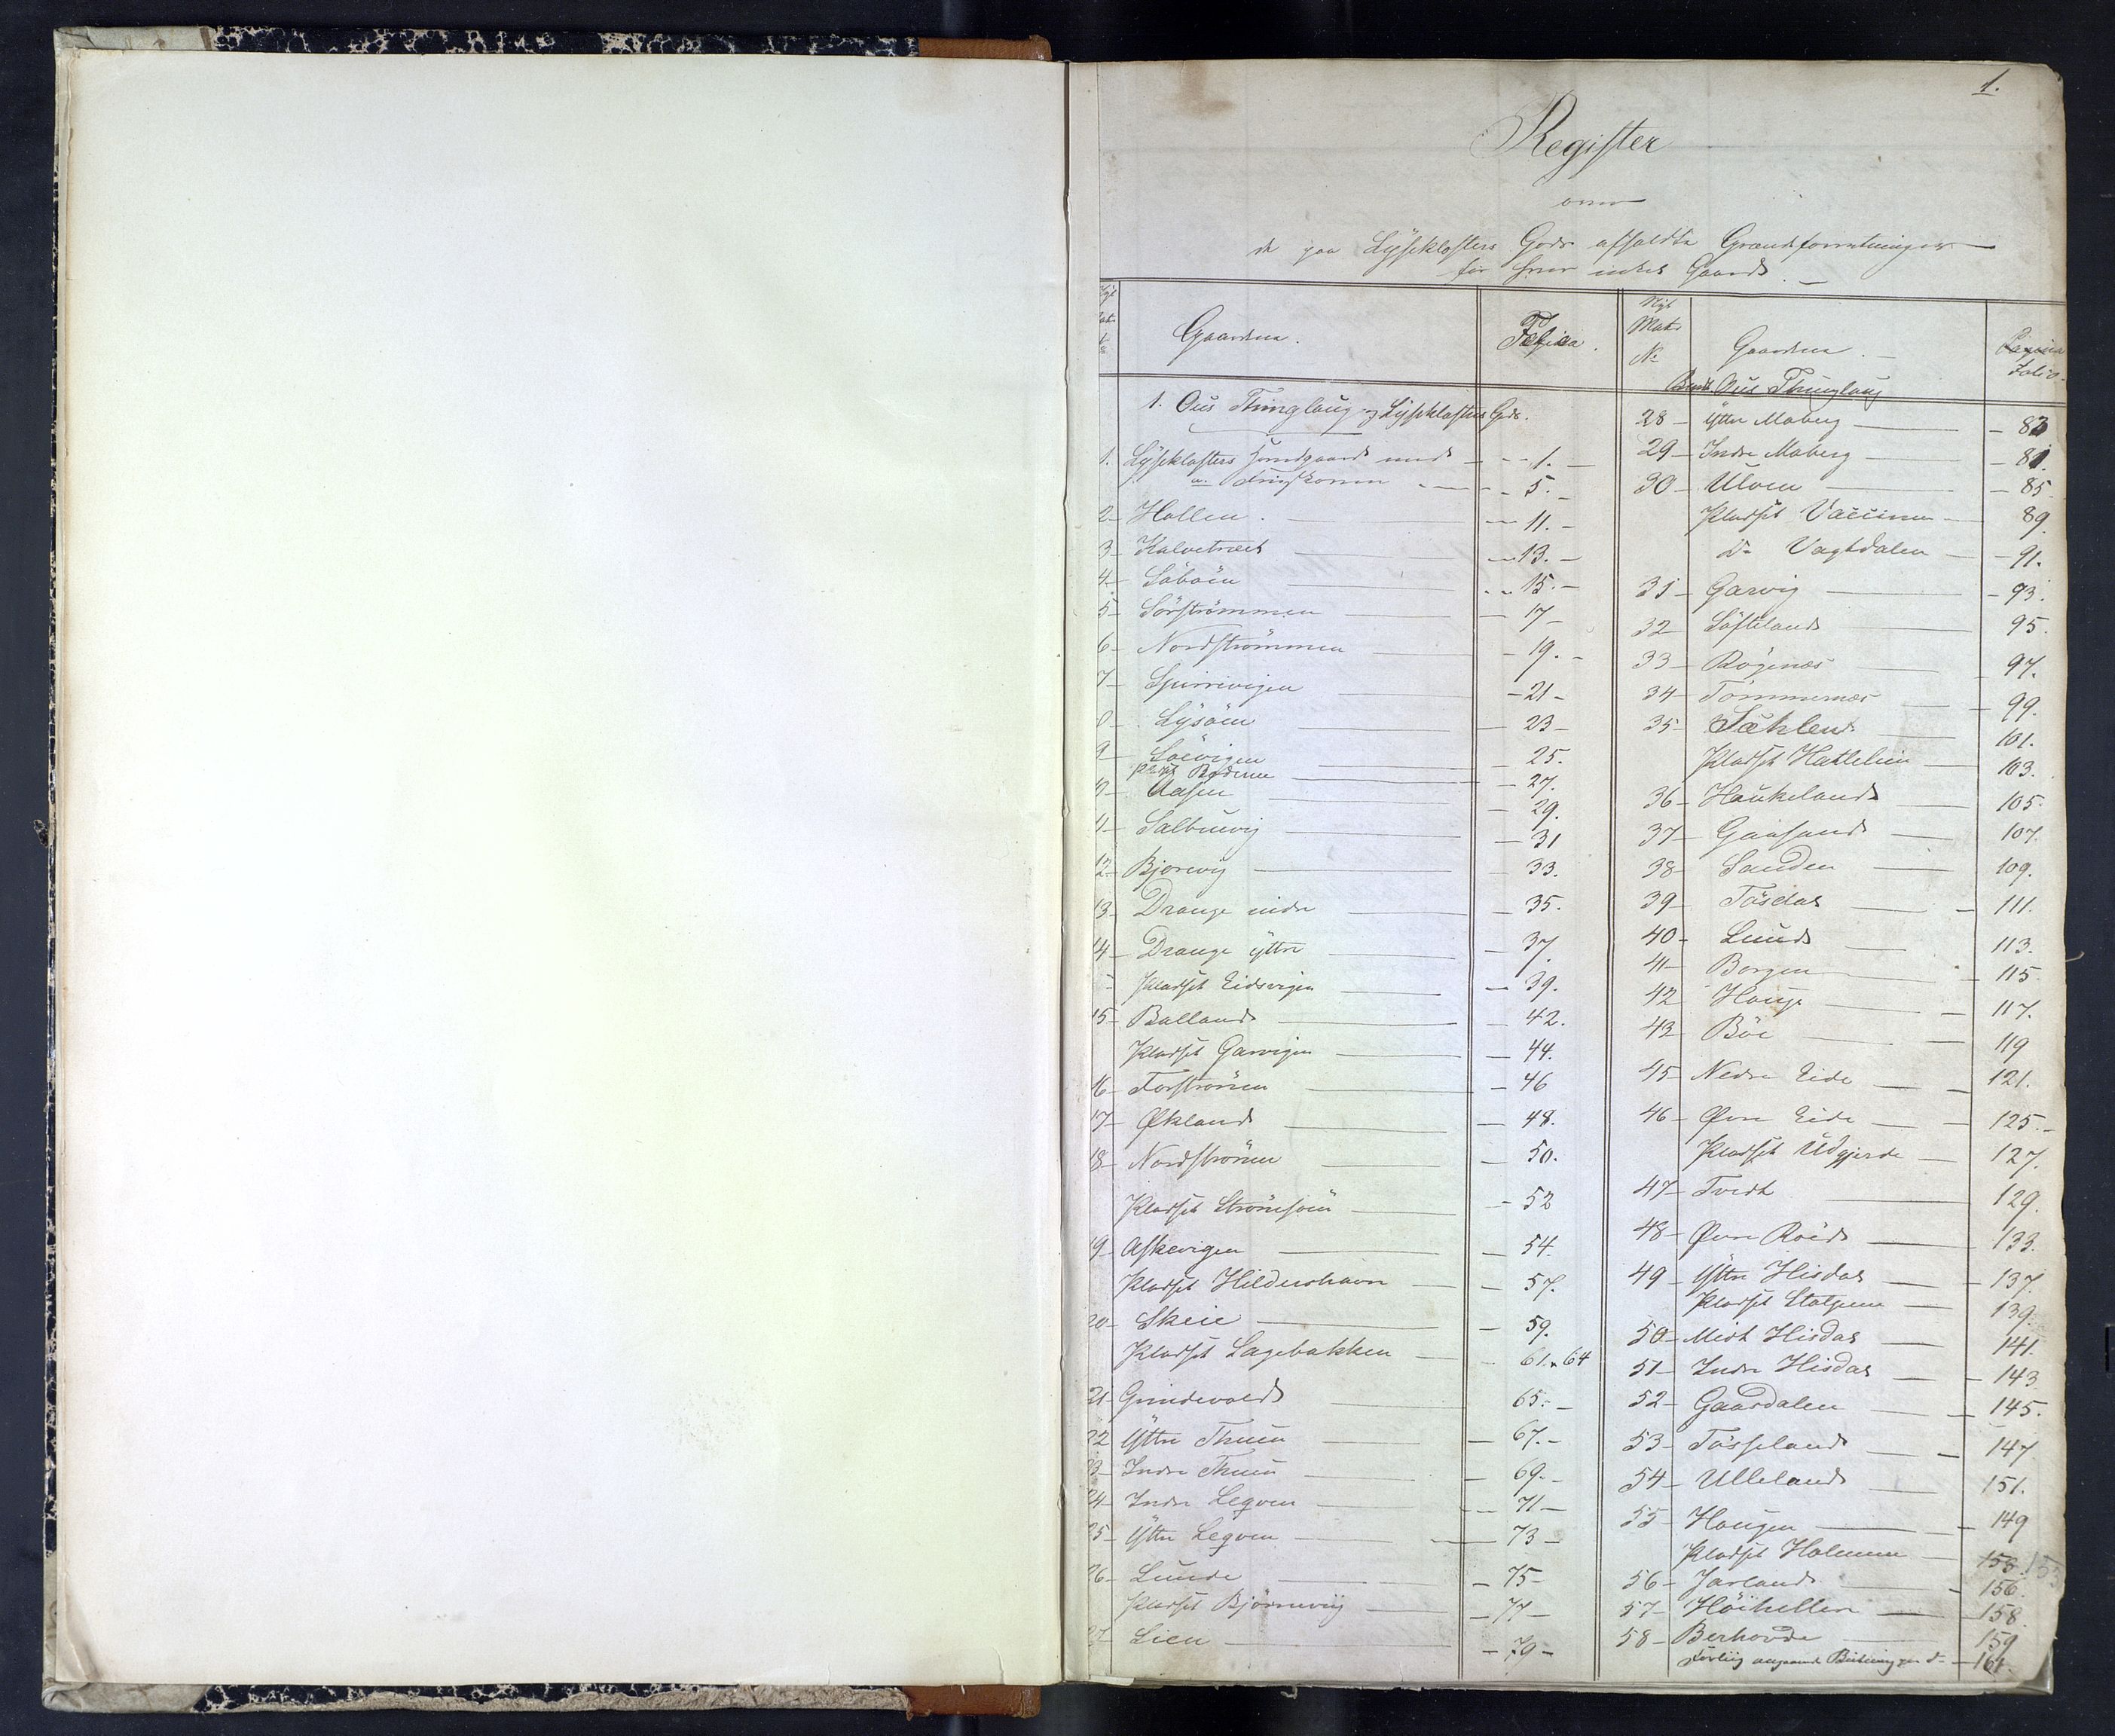 1.
Register
over
de paa Lyseklosters Gods afholdte Grændseforretninger
for hver enkel Gaard.
Nyt Mat. No
Gaardene.
Folio.
1. Ous Thinglaug og Lyseklosters Gods.
1. Lyseklosters Hovedgaard med - 1. -
5. -
2 - Hollen. - 11. -
3 - Kalvetræet - 13. -
4 - Söböen - 15. -
5 - Sörströmmen - 17 -
6 - Nordströmmen - 19. -
7 - Spirrevigen - 21 -
8 - Lysöen - 23 -
9 - Søevigen - 25.
Pladset Boderne - 27.
10 - Aasen - 29.
11 - Salbuevig - 31
12 - Bjorevig - 33.
13 - Drange indre - 35.
14 - Drange yttre - 37.
- Pladset Eidsvigen - 39.
15 - Balland - 42.
Pladset Garvigen - 44.
16 - Forstrønen - 46
17 - Økland - 48.
18 - Nordstrønen - 50.
Pladset Strønesøen - 52
19 - Askevigen - 54.
Pladset Hildershavn - 57.
20 - Skeie - 59.
Pladset Lagebakken - 61. 64
21 - Grindevold - 65. -
22 - Yttre Thuen - 67. -
23 - Indre Thuen - 69. -
24 - Indre Leqven - 71 -
25 - Yttre Leqven - 73 -
26 - Lunde - 75 -
Pladset Bjørnevig - 77 -
27 - Lien - 79 -
Nyt Mat. No
Gaardene.
Pagina
Folio.
Ous Thinglaug
28 - Yttre Moberg - 83
29 - Indre Moberg - 81.
30 - Ulven - 85
Pladset Vaccinen - 89.
Do Vagtdalen - 91.
31 - Garvig - 93.
32 - Söfteland - 95.
33 - Røgenæs - 97.
34 - Tømmernæs - 99.
35 - Sæhlend - 101.
Pladset Hattelien - 103.
36 - Haukeland - 105.
37 - Gaasand - 107.
38 - Sanden - 109.
39 - Tösdal - 111.
40 - Lund - 113.
41 - Borgen - 115
42 - Hauge - 117.
43 - Böe - 119
45 - Nedre Eide - 121.
46 - Øvre Eide - 125. -
Pladset Udgjerde - 127.
47 - Tvedt - 129.
48 - Øvre Røed - 133.
49 - Yttre Hisdal - 137.
Pladset - 139.
50 - Midt Hisdal - 141.
51 - Indre Hisdal - 143
52 - Gaardalen - 145.
53 - Tösseland - 147
54 - Ulleland - 151.
55 - Haugen - 149
Pladset Holmene - 153. 153
56 - Jarland - 156.
57 - Höihellen - 158
58 - Berhovde - 159
Forliig angaaende - 161.